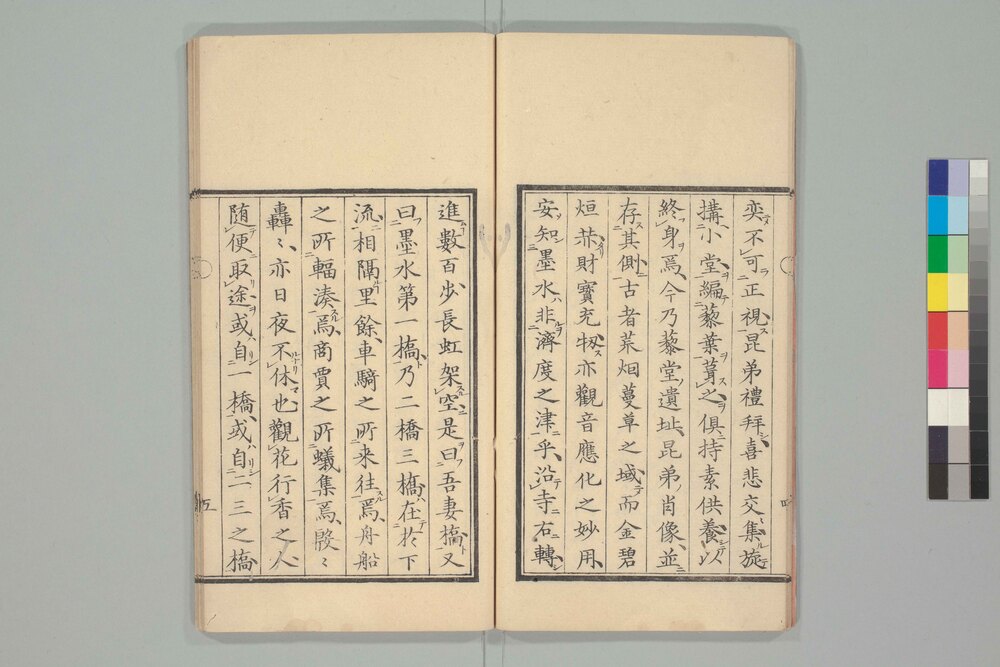 奕不可正視昆弟禮拜喜悲交集旋
搆小堂編藜葉葺之俱持素供養以
終身焉今乃藜堂遺址昆弟肖像並
存其側古者菜畑蔓草之域而金碧
烜赫財寶充牣亦觀音應化之妙用
安知墨水非濟度之津乎沿寺右轉
進數百步長虹架空是曰吾妻橋又
曰墨水第一橋乃二橋三橋在於下
流相隔里餘車騎之所来往焉舟船
之所輻湊焉商賈之所蟻集焉殷々
轟々亦日夜不休也觀花行香之人
随便取途或自一橋或自二三之橋